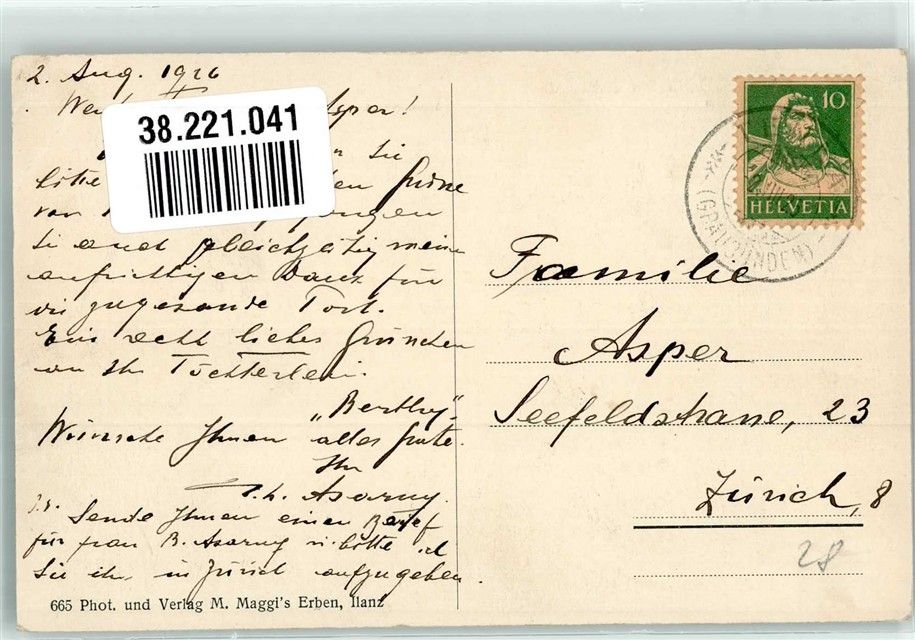 2. Aug. 1926
38.221.041
Sie
bitte Grüsse
von
Sie und gleichzeitig meinen
aufrichtigen Dank für
die zugesandte Tort.
Ein recht liebes Grüsschen
an Ihr Töchterlein.
„Berthy“
Wünsche Ihnen alles Gute.
Ihr
Sende Ihnen einen Brief
für Frau B. u. bitte
Sie ihn in Zürich aufzugeben.
665 Phot. und Verlag M. Maggi's Erben, Ilanz
10
HELVETIA
(GRAUBÜNDEN)
Familie
Asper
Seefeldstrasse, 23
Zürich, 8
28